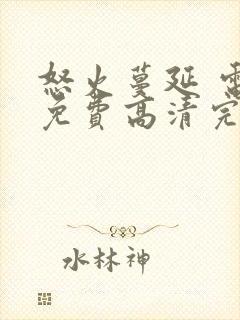 怒火蔓延 電
免費高清完
水林神